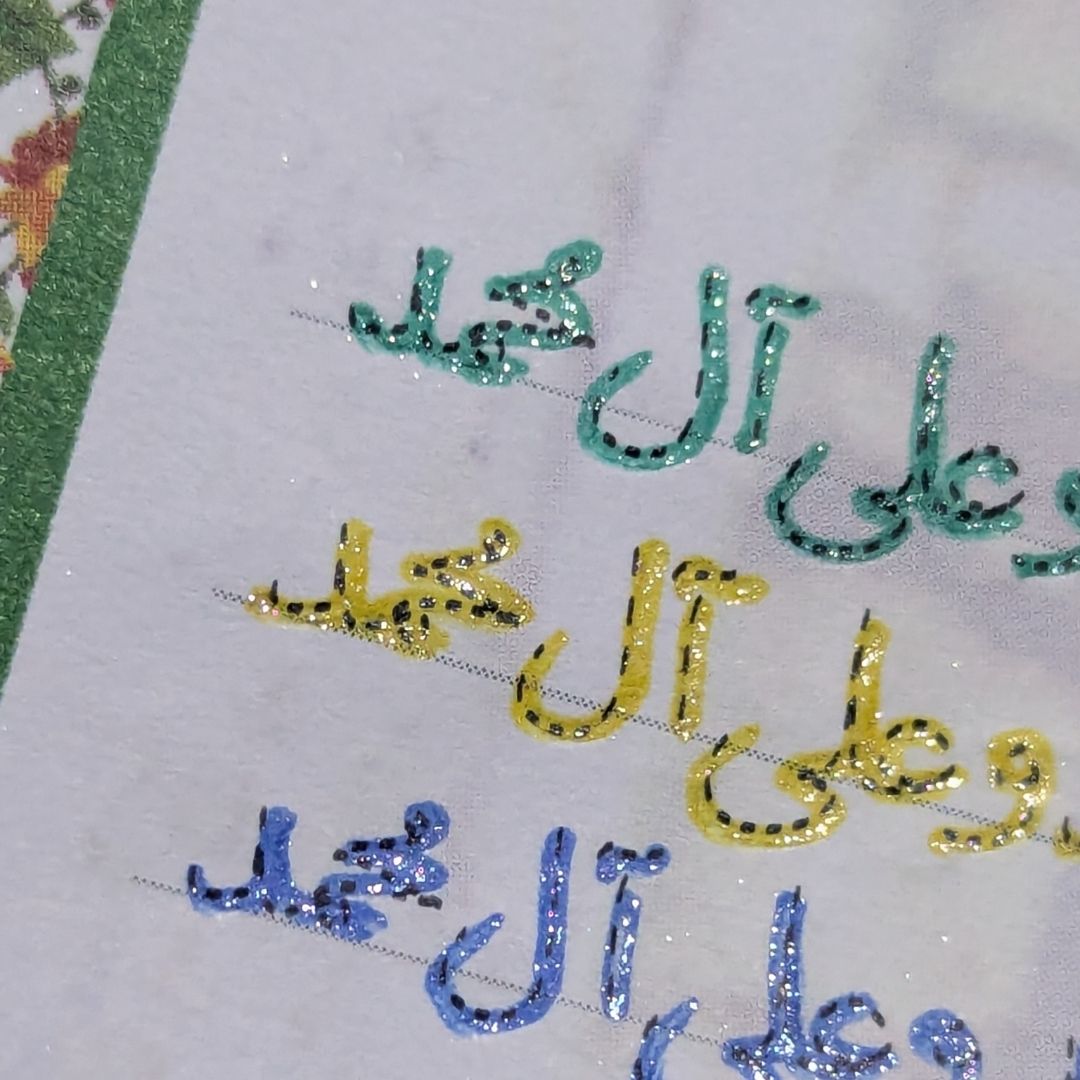 وعلى آل محمد
وعلى آل محمد
وعلى آل محمد